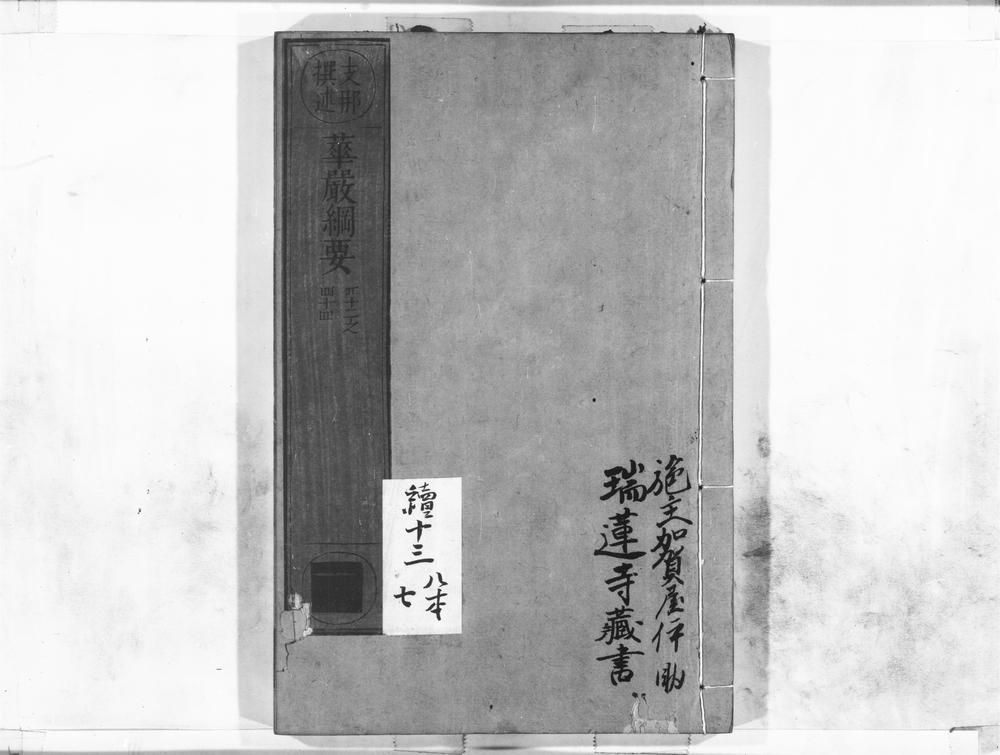 支那
撰述
華嚴綱要
四十二之
四十四
施主加賀屋伊助
瑞蓮寺藏書
續十三
八本
七